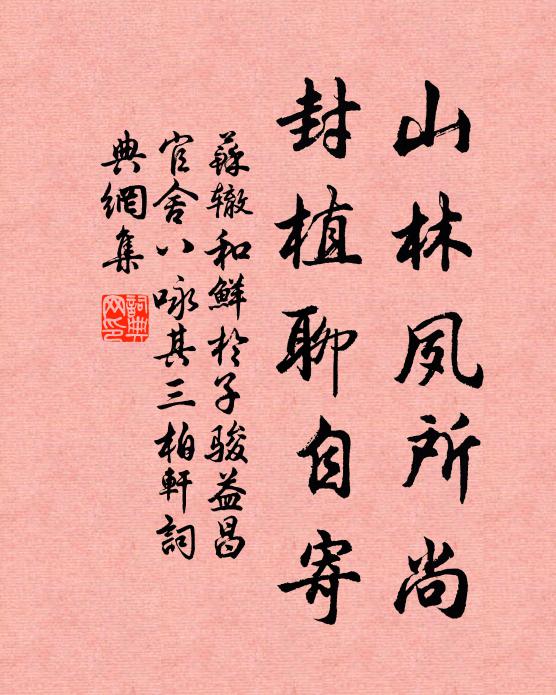 山林夙所尚
封植聊自寄
蘇辙和鮮於子駿益昌
官舍八咏其三柏軒詞
典網集
詞典
网印